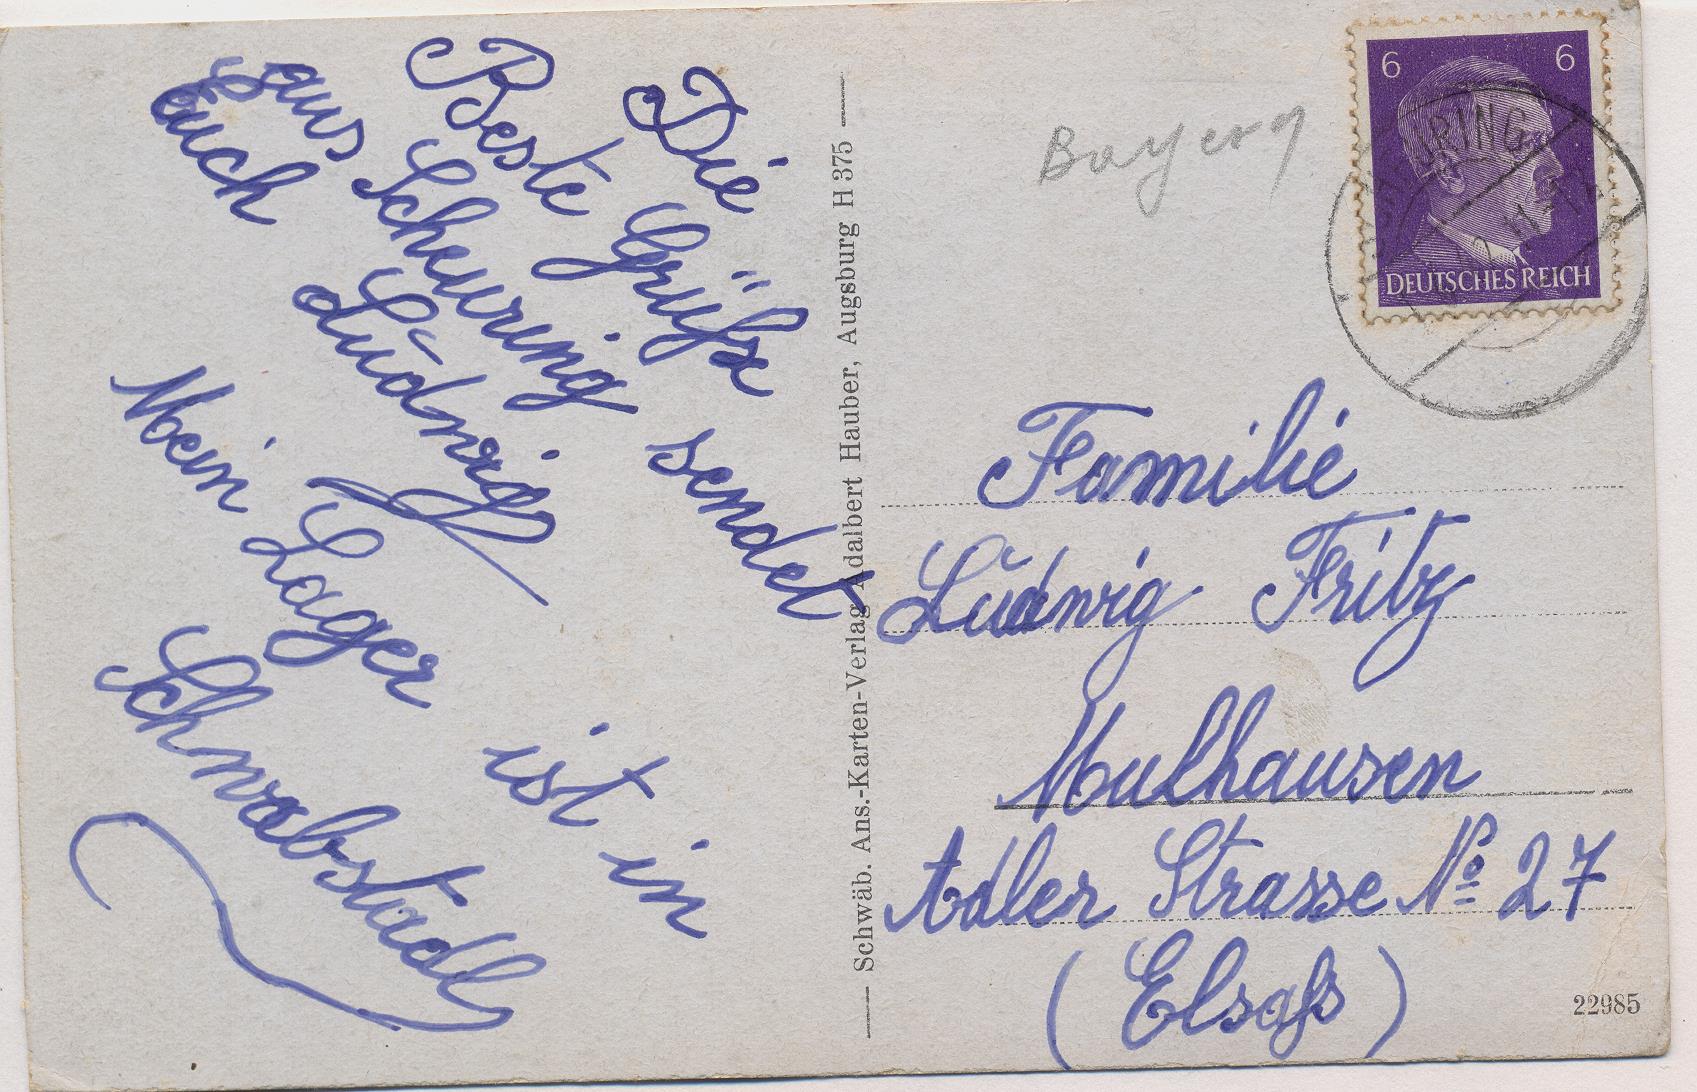 Die
Beste Grüße sendet
aus Scheuring
Euch Ludwig
Mein Lager ist in
Schwabstadl
Schwäb. Ans.-Karten-Verlag Adalbert Hauber, Augsburg H 375
Bayern
6 6
DEUTSCHES REICH
Familie
Ludwig Fritz
Mulhausen
Adler Strasse No 27
(Elsaß)
22985